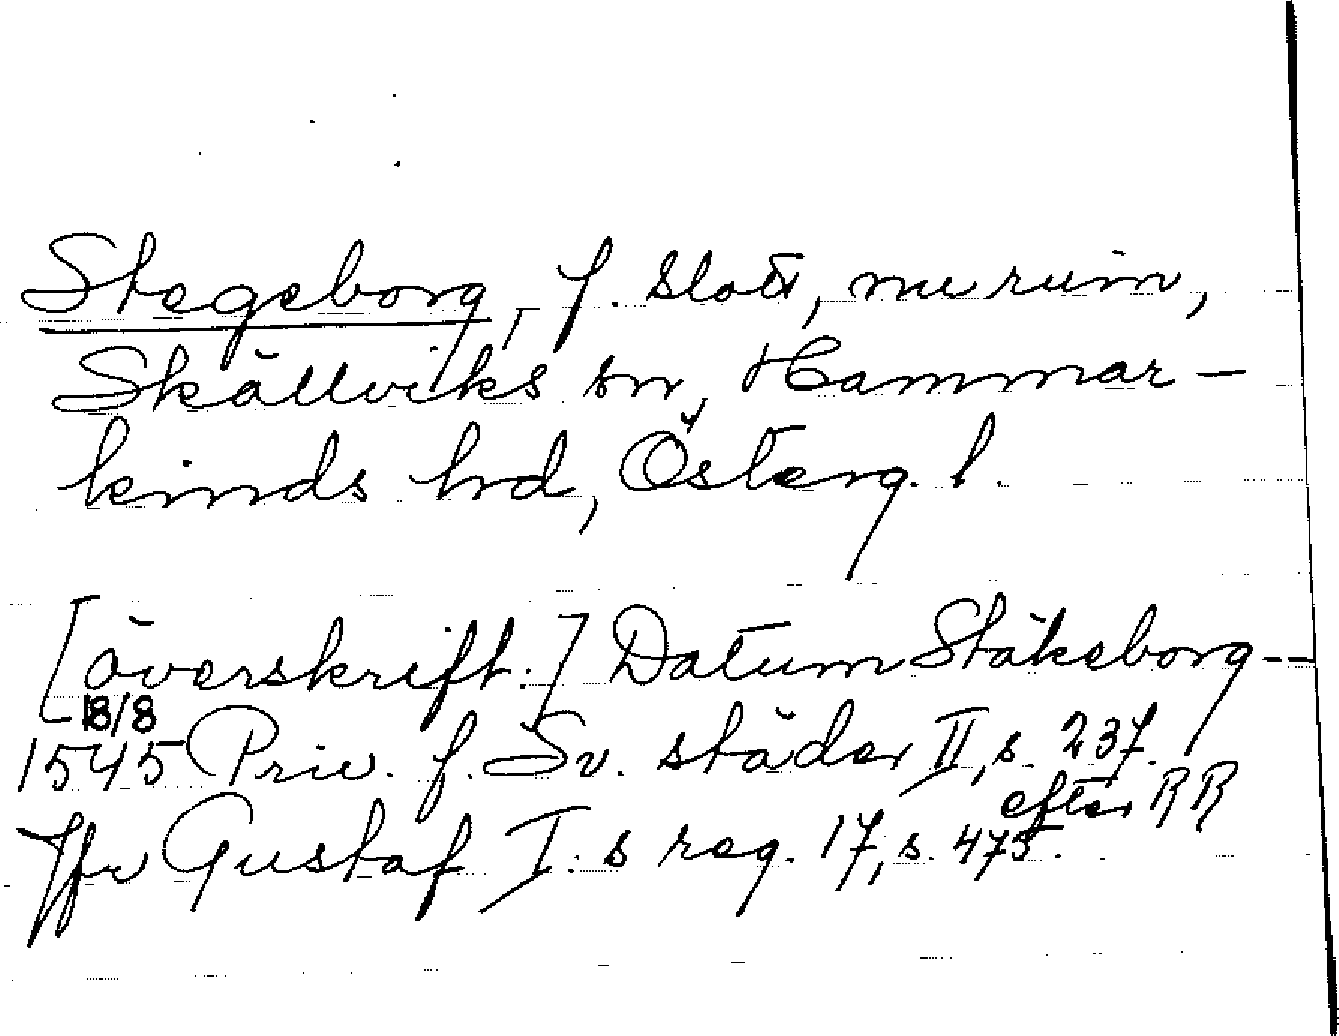 Stegeborg, f. slott, nu ruin,
Skällviks sn, Hammar-
kinds hd, Österg. l.
[överskrift:] Datum Stäkeborg --
18/8
1545 Priv. f. Sv. städer II, s. 237.
efter RR
Jfr Gustaf I:s reg. 17, s. 473.